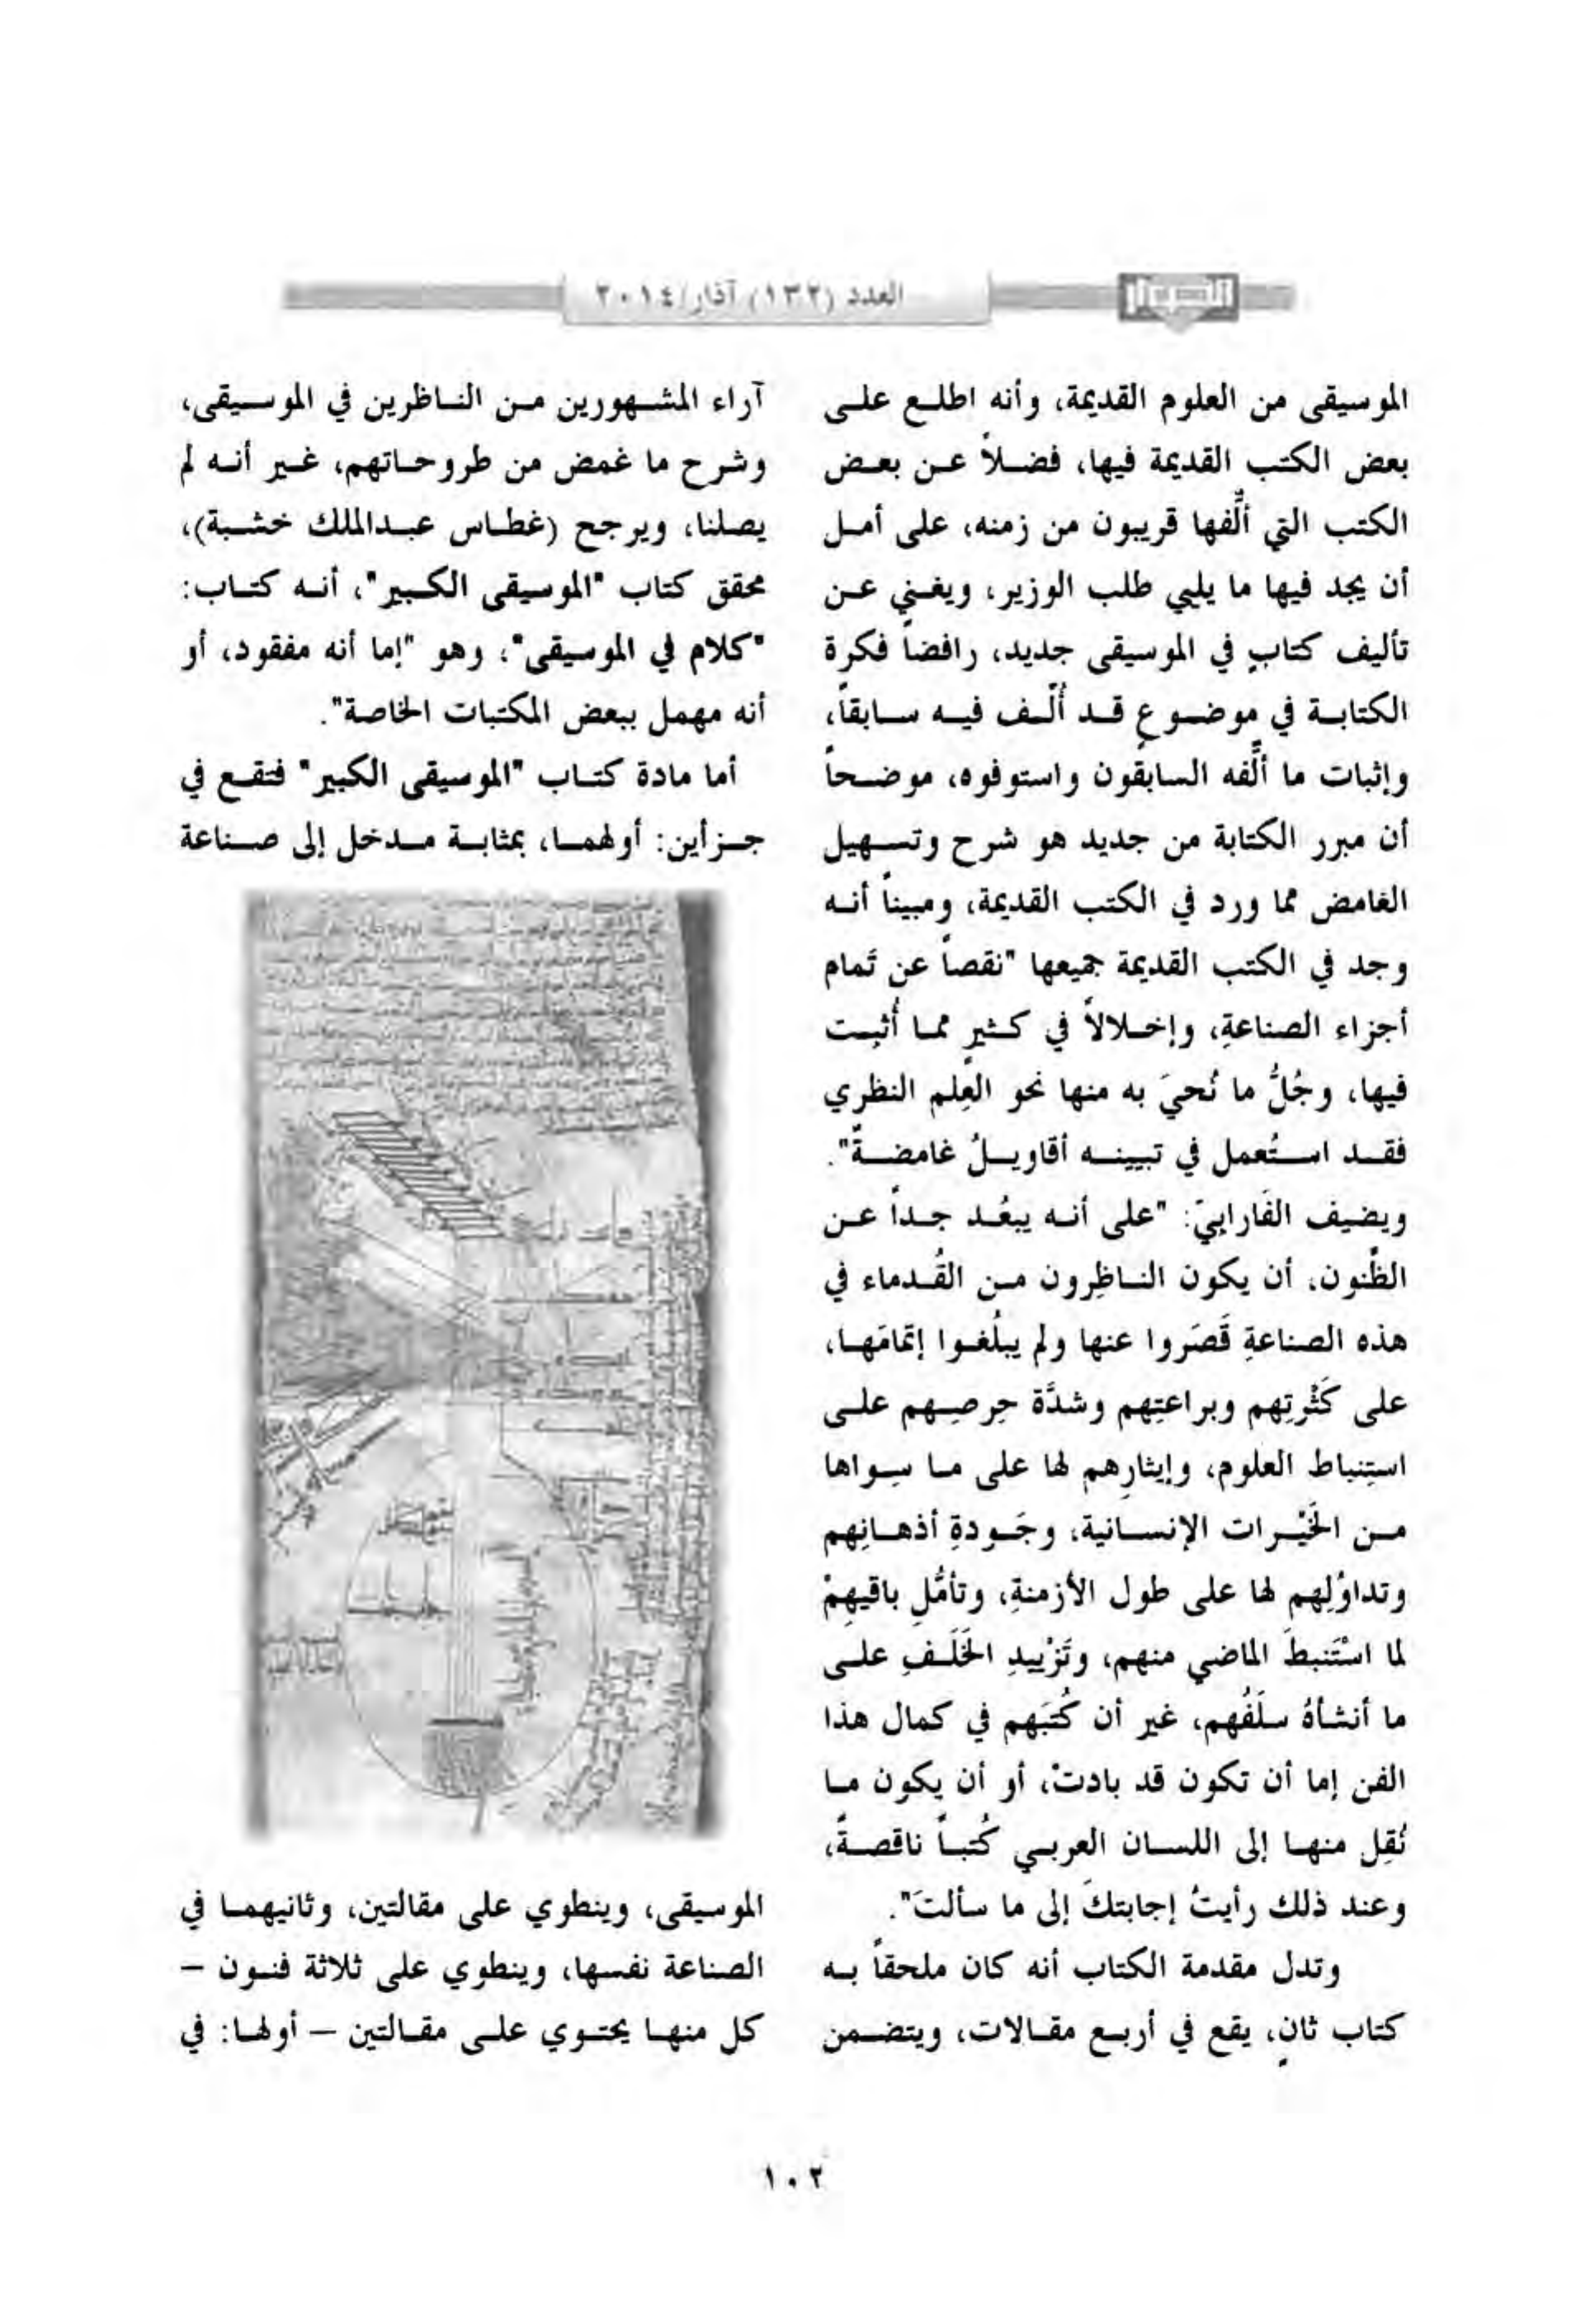 العدد (١٣٢) آذار/٢٠١٤
الموسيقى من العلوم القديمة، وأنه اطلع على
بعض الكتب القديمة فيها، فضلاً عن بعض
الكتب التي ألَّفها قريبون من زمنه، على أمل
أن يجد فيها ما يلبي طلب الوزير، ويغني عن
تأليف كتابٍ في الموسيقى جديد، رافضاً فكرة
الكتابة في موضوعٍ قد أُلّف فيه سابقاً،
وإثبات ما ألَّفه السابقون واستوفوه، موضحاً
أن مبرر الكتابة من جديد هو شرح وتسهيل
الغامض مما ورد في الكتب القديمة، ومبيناً أنه
وجد في الكتب القديمة جميعها "نقصاً عن تَمام
أجزاء الصناعةِ، وإخلالاً في كثيرٍ مما أُثبِت
فيها، وجُلُّ ما نُحيَ به منها نحو العِلم النظري
فقد استُعمل في تبيينه أقاويلُ غامضةٌ".
ويضيف الفَارابيّ: "على أنه يبعُد جداً عن
الظُّنون، أن يكون الناظِرون من القُدماء في
هذه الصناعةِ قَصَروا عنها ولم يبلُغوا إتمَامَها،
على كَثْرتِهم وبراعتِهم وشدَّة حِرصِهم على
استِنباط العلوم، وإيثارِهم لها على ما سِواها
من الخَيْرات الإنسانية، وجَودةِ أذهانِهم
وتداوُلِهم لها على طول الأزمنةِ، وتأمُّلِ باقيهِمْ
لما اسْتَنبطَ الماضي منهم، وتَزْييدِ الخَلَفِ على
ما أنشأهُ سلَفُهم، غير أن كُتبَهم في كمال هذا
الفن إما أن تكون قد بادتْ، أو أن يكون ما
نُقِل منها إلى اللسان العربي كُتباً ناقصةً،
وعند ذلك رأيتُ إجابتكَ إلى ما سألتَ".
وتدل مقدمة الكتاب أنه كان ملحقاً به
كتاب ثانٍ، يقع في أربع مقالات، ويتضمن
آراء المشهورين من الناظرين في الموسيقى،
وشرح ما غمض من طروحاتهم، غير أنه لم
يصلنا، ويرجح (غطاس عبدالملك خشبة)،
محقق كتاب "الموسيقى الكبير"، أنه كتاب:
"كلام في الموسيقى"؛ وهو "إما أنه مفقود، أو
أنه مهمل ببعض المكتبات الخاصة".
أما مادة كتاب "الموسيقى الكبير" فتقع في
جزأين: أولهما، بمثابة مدخل إلى صناعة
الموسيقى، وينطوي على مقالتين، وثانيهما في
الصناعة نفسها، وينطوي على ثلاثة فنون –
كل منها يحتوي على مقالتين – أولها: في
١٠٢